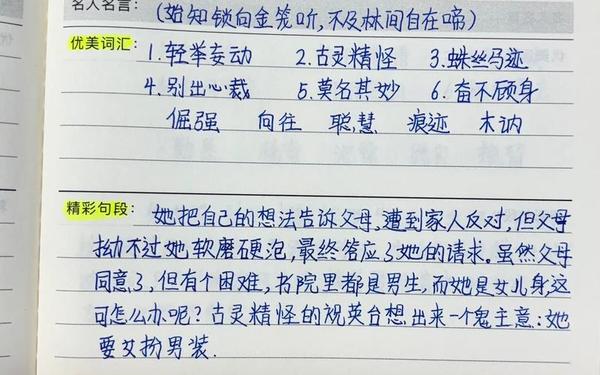 名人名言: (始知锁向金笼听,不及林间自在啼)
优美词汇: 1.轻举妄动 2.古灵精怪 3.蛛丝马迹
4.别出心裁 5.莫名其妙 6.奋不顾身
倔强 向往 聪慧 痕迹 木讷
精彩句段: 她把自己的想法告诉父母,遭到家人反对,但父母
拗不过她软磨硬泡,最终答应了她的请求。虽然父母
同意了,但有个困难,书院里都是男生,而她是女儿身,这
可怎么办呢?古灵精怪的祝英台想出来一个鬼主意:她
要女扮男装.